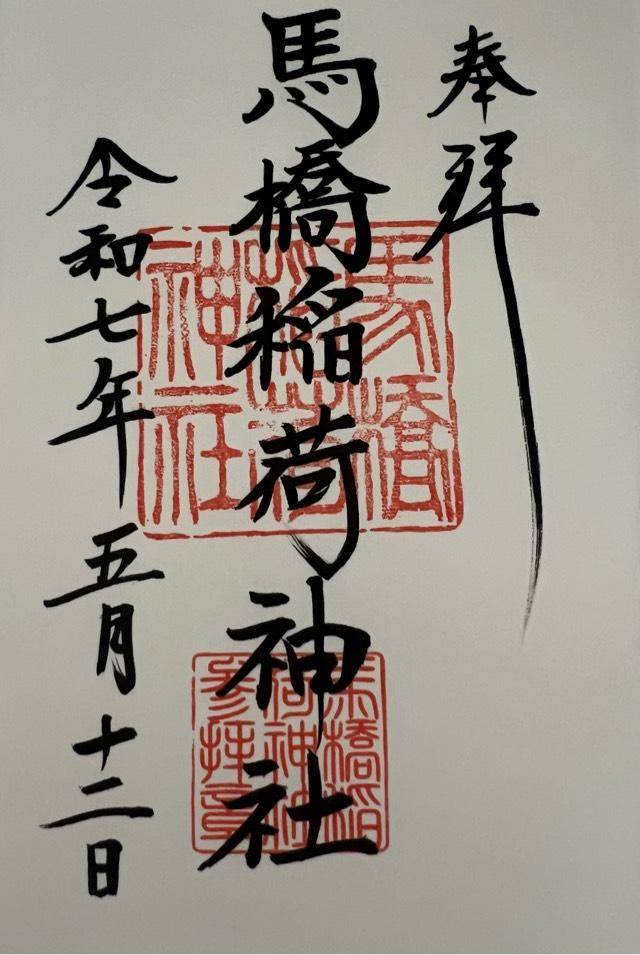 奉拜
馬橋稲荷神社
令和七年五月十二日
馬橋稲荷神社
馬橋稲荷神社参拝章